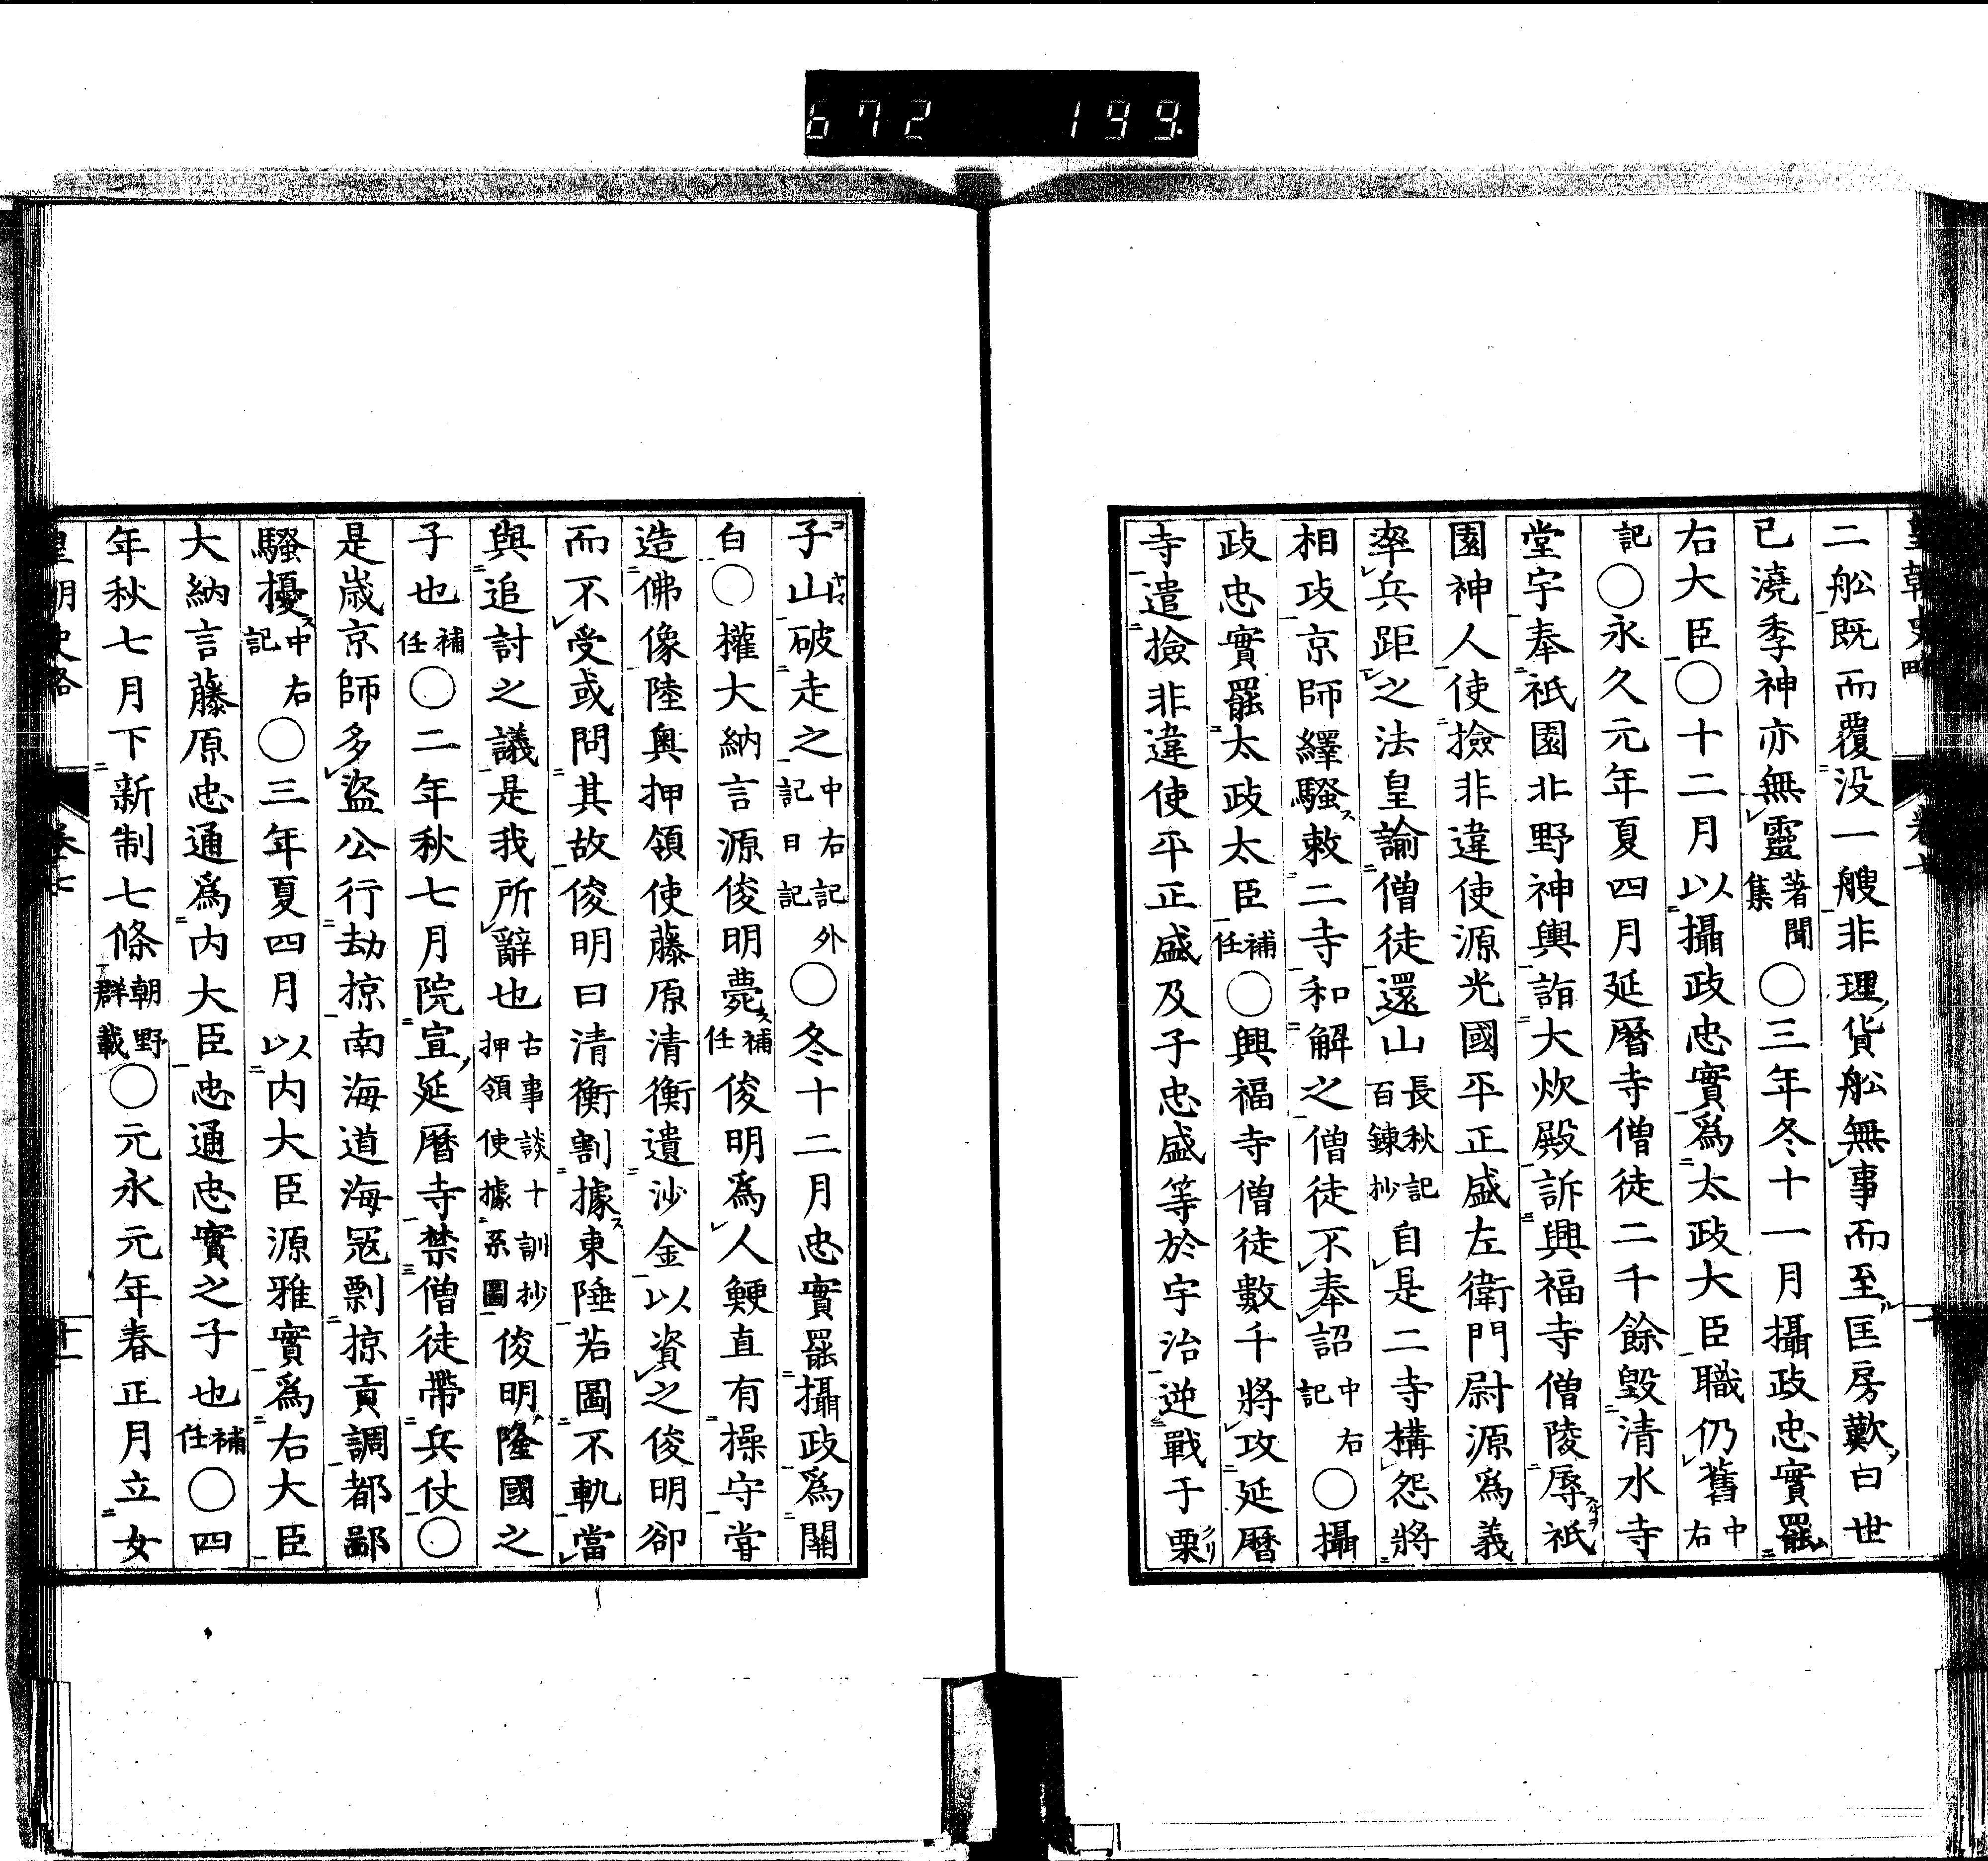 672 199.
二舩既而覆没一艘非理貨舩無事而至匡房歎曰世
已澆季神亦無靈著聞集〇三年冬十一月攝政忠實罷
右大臣〇十二月以攝政忠實爲太政大臣職仍舊中右
記〇永久元年夏四月延暦寺僧徒二千餘毀清水寺
堂宇奉祇園北野神輿詣大炊殿訴興福寺僧陵辱祇
園神人使撿非違使源光國平正盛左衛門尉源爲義
率兵距之法皇諭僧徒還山長秋記百錬抄自是二寺構怨將
相攻京師繹騷敕二寺和解之僧徒不奉詔中右記〇攝
政忠實罷太政大臣補任〇興福寺僧徒數千將攻延暦
寺遣撿非違使平正盛及子忠盛等於宇治逆戰于栗
子山破走之中右記外記日記〇冬十二月忠實罷攝政爲關
白〇權大納言源俊明薨補任俊明爲人鯁直有操守甞
造佛像陸奥押領使藤原清衡遺沙金以資之俊明卻
而不受或問其故俊明曰清衡割據東陲若圖不軌當
與追討之議是我所辭也古事談十訓抄押領使據系圖俊明隆國之
子也補任〇二年秋七月院宣延暦寺禁僧徒帶兵仗〇
是歳京師多盜公行劫掠南海道海冦剽掠貢調都鄙
騷擾中右記〇三年夏四月以内大臣源雅實爲右大臣
大納言藤原忠通爲内大臣忠通忠實之子也補任〇四
年秋七月下新制七條朝野群載〇元永元年春正月立女
皇朝史略 卷七 十一